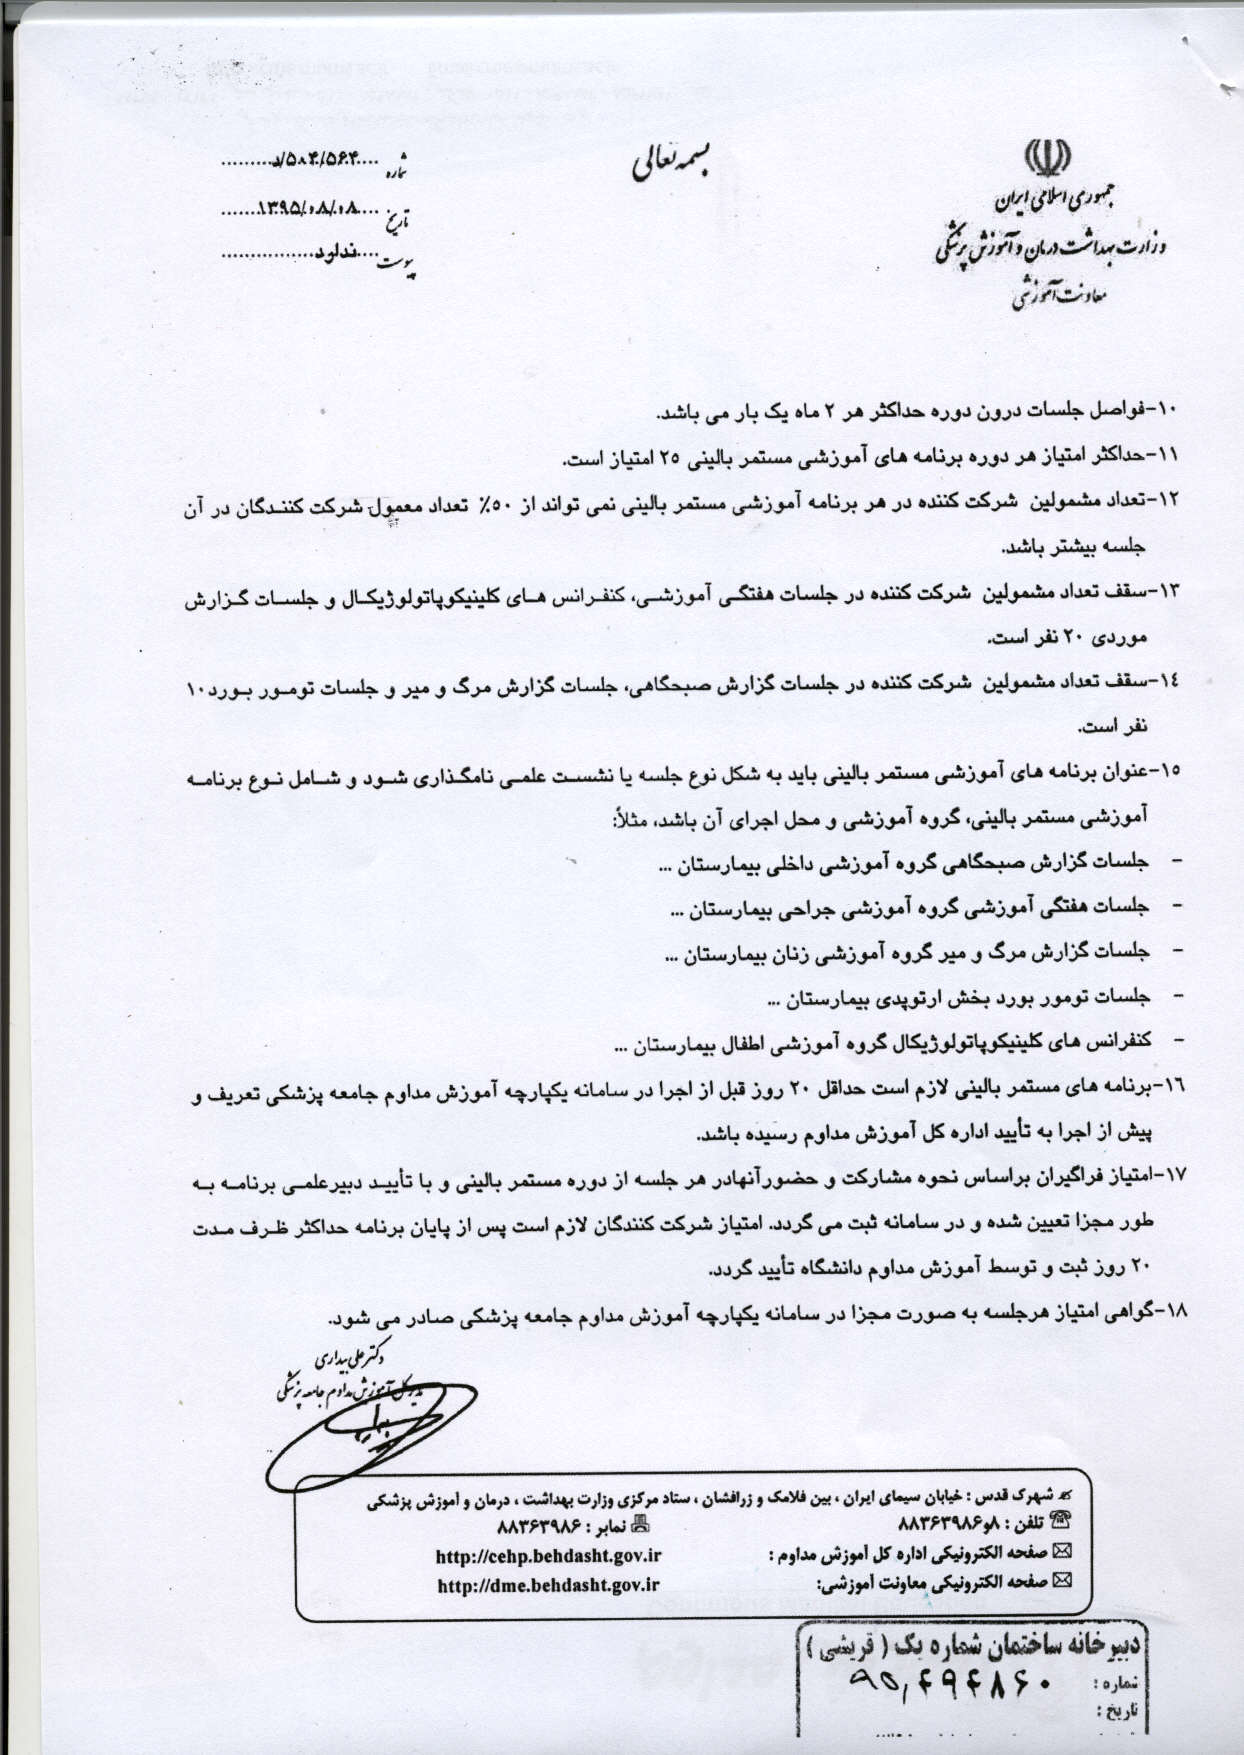 جمهوری اسلامی ایران
وزارت بهداشت درمان و آموزش پزشکی
معاونت آموزشی
بسمه تعالی
شماره ....۵۸۴/۵۶۴/د.........
تاریخ ....۱۳۹۵/۰۸/۰۸.......
پیوست ....ندارد................
۱۰-فواصل جلسات درون دوره حداکثر هر ۲ ماه یک بار می باشد.
۱۱-حداکثر امتیاز هر دوره برنامه های آموزشی مستمر بالینی ۲۵ امتیاز است.
۱۲-تعداد مشمولین شرکت کننده در هر برنامه آموزشی مستمر بالینی نمی تواند از ۵۰٪ تعداد معمول شرکت کنندگان در آن
جلسه بیشتر باشد.
۱۳-سقف تعداد مشمولین شرکت کننده در جلسات هفتگی آموزشی، کنفرانس های کلینیکوپاتولوژیکال و جلسات گزارش
موردی ۲۰ نفر است.
۱۴-سقف تعداد مشمولین شرکت کننده در جلسات گزارش صبحگاهی، جلسات گزارش مرگ و میر و جلسات تومور بورد۱۰
نفر است.
۱۵-عنوان برنامه های آموزشی مستمر بالینی باید به شکل نوع جلسه یا نشست علمی نامگذاری شود و شامل نوع برنامه
آموزشی مستمر بالینی، گروه آموزشی و محل اجرای آن باشد، مثلاً:
- جلسات گزارش صبحگاهی گروه آموزشی داخلی بیمارستان ...
- جلسات هفتگی آموزشی گروه آموزشی جراحی بیمارستان ...
- جلسات گزارش مرگ و میر گروه آموزشی زنان بیمارستان ...
- جلسات تومور بورد بخش ارتوپدی بیمارستان ...
- کنفرانس های کلینیکوپاتولوژیکال گروه آموزشی اطفال بیمارستان ...
۱۶-برنامه های مستمر بالینی لازم است حداقل ۲۰ روز قبل از اجرا در سامانه یکپارچه آموزش مداوم جامعه پزشکی تعریف و
پیش از اجرا به تأیید اداره کل آموزش مداوم رسیده باشد.
۱۷-امتیاز فراگیران براساس نحوه مشارکت و حضورآنهادر هر جلسه از دوره مستمر بالینی و با تأیید دبیرعلمی برنامه به
طور مجزا تعیین شده و در سامانه ثبت می گردد. امتیاز شرکت کنندگان لازم است پس از پایان برنامه حداکثر ظرف مدت
۲۰ روز ثبت و توسط آموزش مداوم دانشگاه تأیید گردد.
۱۸-گواهی امتیاز هرجلسه به صورت مجزا در سامانه یکپارچه آموزش مداوم جامعه پزشکی صادر می شود.
دکتر علی بیداری
مدیر کل آموزش مداوم جامعه پزشکی
شهرک قدس : خیابان سیمای ایران ، بین فلامک و زرافشان ، ستاد مرکزی وزارت بهداشت ، درمان و آموزش پزشکی
تلفن : ۸و۸۸۳۶۳۹۸۶ نمابر : ۸۸۳۶۳۹۸۶
صفحه الکترونیکی اداره کل آموزش مداوم : http://cehp.behdasht.gov.ir
صفحه الکترونیکی معاونت آموزشی: http://dme.behdasht.gov.ir
دبیرخانه ساختمان شماره یک ( قریشی )
شماره : ۹۵,۴۹۴۸۶۰
تاریخ :